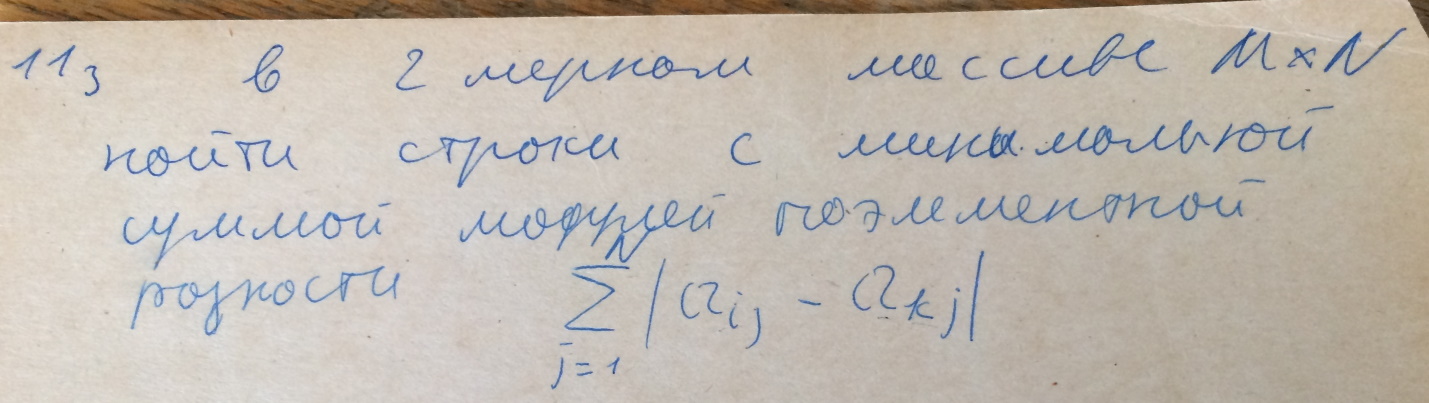 11₃ в 2 мерном массиве M×N
найти строки с минимальной
суммой модулей поэлементной
разности $\sum_{j=1}^{N} |a_{ij} - a_{kj}|$